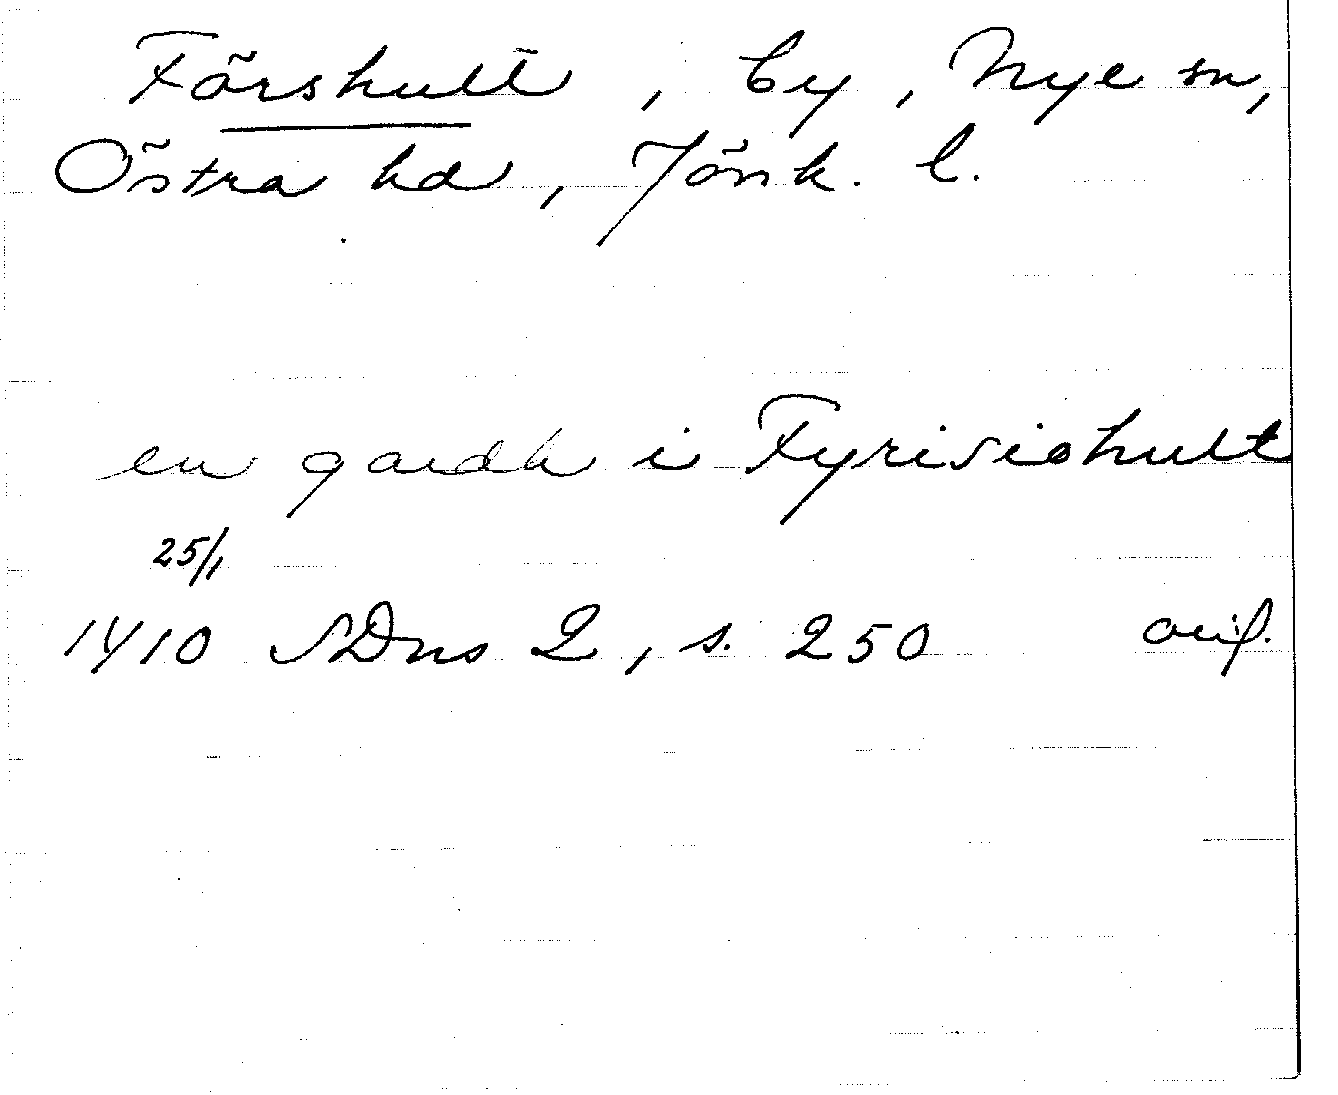 Förshult, by, Nye sn,
Östra hd, Jönk. l.
en gardh i Fyrisiohult
25/1
1410 SDns 2, s. 250 avif.